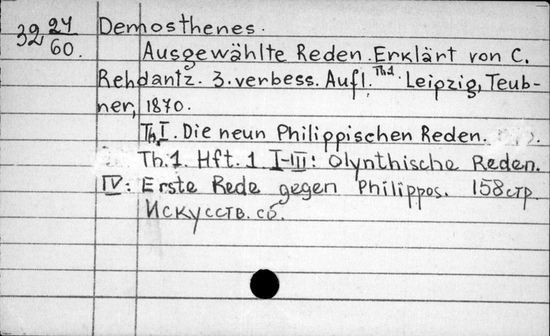 32 24/60. Demosthenes.
Ausgewählte Reden. Erklärt von C.
Rehdantz. 3. verbess. Aufl. Th.1. Leipzig, Teub-
ner, 1870.
Th. I. Die neun Philippischen Reden.
Th. 1. Hft. 1 I-III: Olynthische Reden.
IV: Erste Rede gegen Philippos. 158 стр.
Искусств. сб.